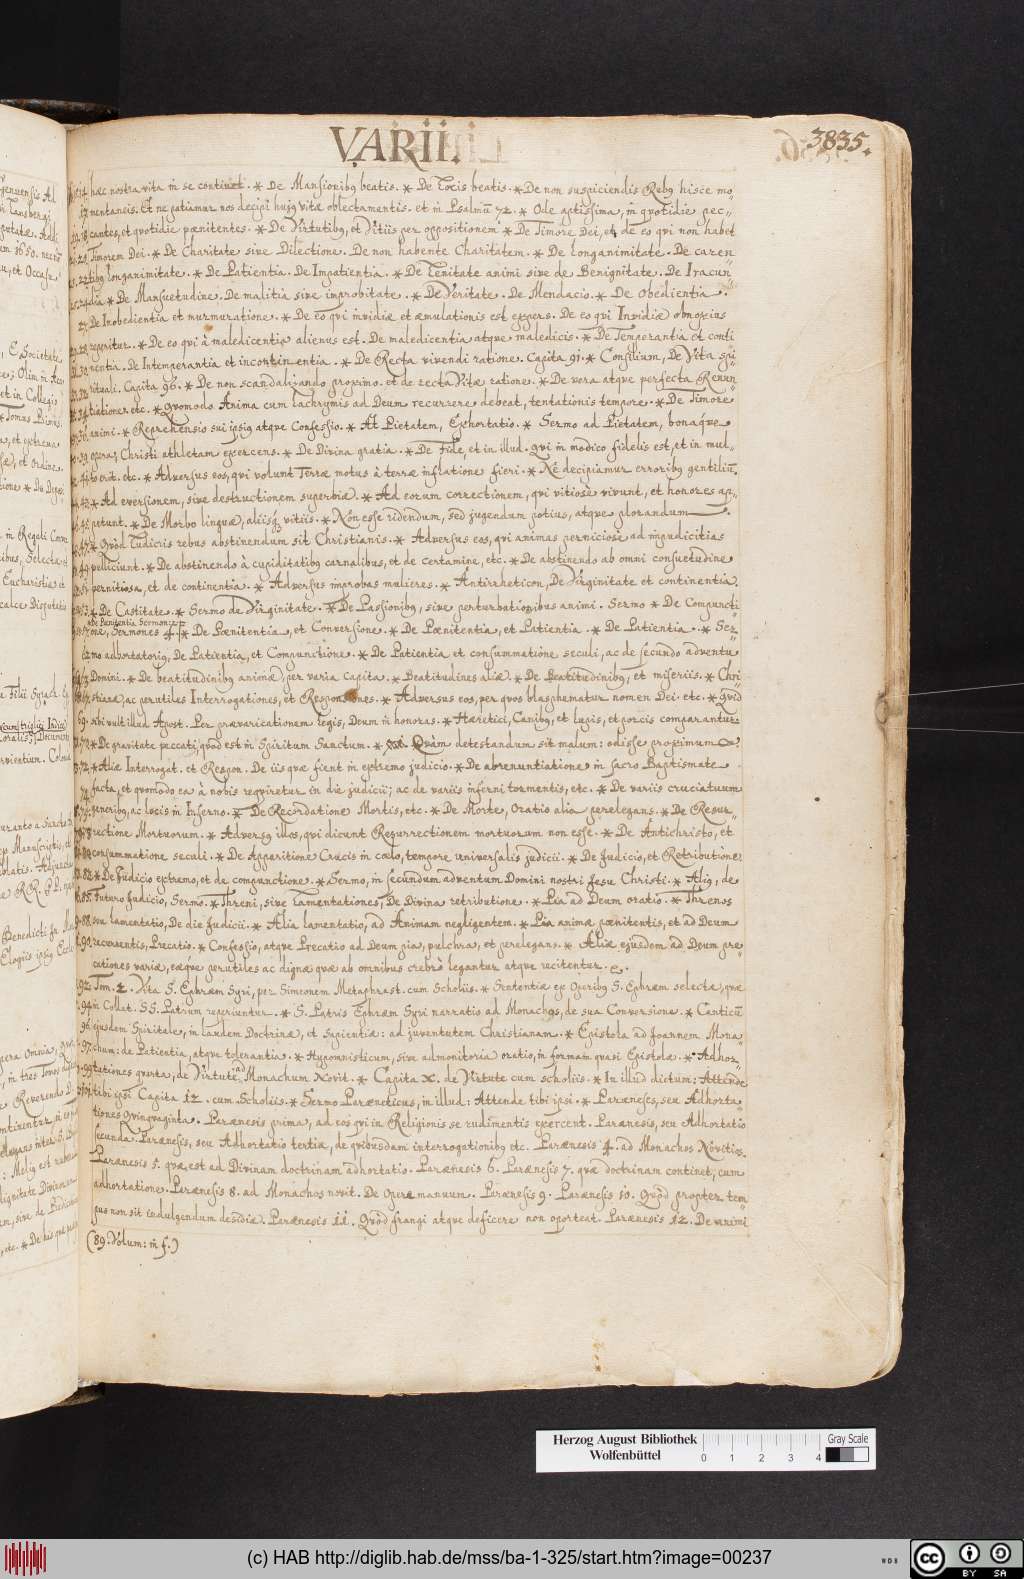 VARII.
3835.
hæc nostra vita in se continet. * De Mansionibꝯ beatis. * De Locis beatis. * De non suspiciendis Rebꝯ hisce mo⸗
mentaneis. Et ne patiamur nos decipi hujꝯ vitæ oblectamentis. et in Psalmū 72. * Ode aptissima, in quotidie pec⸗
cantes, et quotidie pœnitentes. * De Virtutibꝯ, et Vitiis per oppositionem * De Timore Dei, et de eo qvi non habet
Timorem Dei. * De Charitate sive Dilectione. De non habente Charitatem. * De Longanimitate. De caren⸗
tibꝯ longanimitate. * De Patientia. De Impatientia. * De Lenitate animi sive de Benignitate. De Iracun⸗
dia * De Mansuetudine. De malitia sive improbitate. * De Veritate. De Mendacio. * De Obedientia.
De Inobedientia et murmuratione. * De eo qvi invidiæ et æmulationis est expers. De eo qvi Invidiæ obnoxius
reperitur. * De eo qvi à maledicentia alienus est. De maledicentia atque maledicis. * De Temperantia et conti
nentia. De Intemperantia et incontinentia. * De Recta vivendi ratione. Capita 91. * Consilium, De Vita spi⸗
rituali. Capita 96. * De non scandalizando proximo. et de recta Vitæ ratione. * De vera atque perfecta Renun
tiatione etc. * Quomodo Anima cum lachrymis ad Deum recurrere debeat, tentationis tempore. * De Timore
animi. * Reprehensio sui ipsiꝯ atque Confessio. * At Pietatem, Exhortatio. * Sermo ad Pietatem, bonaque
opera, Christi athletam exercens. * De Divina gratia. * De Fide, et in illud. Qvi in modico fidelis est, et in mul⸗
to erit. etc. * Adversus eos, qvi volunt Terræ motus à terræ inflatione fieri. * Ne decipiamur erroribꝯ gentiliū.
Ad eversionem, sive destructionem superbiæ. * Ad eorum correctionem, qvi vitiosè vivunt, et honores ap⸗
petunt. * De Morbo linguæ, aliisq; vitiis. * Non esse ridendum, sed lugendum potius, atque plorandum.
* Quòd Ludicris rebus abstinendum sit Christianis. * Adversus eos, qvi animas perniciose ad impudicitias
pelliciunt. * De abstinendo à cupiditatibꝯ carnalibus, et de certamine, etc. * De abstinendo ab omni consuetudine
pernitiosa, et de continentia. * Adversus improbas mulieres. * Antirrheticon, De Virginitate et continentia.
* De Castitate. * Sermo de Virginitate. * De Passionibꝯ, sive perturbationibus animi. Sermo * De Compuncti
* De Pœnitentia Sermones
one, Sermones 4. * De Pœnitentia, et Conversione. * De Pœnitentia, et Patientia. * De Patientia. * Ser⸗
mo adhortatoriꝯ, De Patientia, et Compunctione. * De Patientia et consummatione seculi, ac de secundo adventu
Domini. * De beatitudinibꝯ animæ, per varia Capita. * Beatitudines aliæ. * De Beatitudinibꝯ, et miseriis. * Chri
stianæ, ac perutiles Interrogationes, et Responsiones. * Adversus eos, per qvos blasphematur nomen Dei etc. * Quid
sibi vult illud Apost. Per prævaricationem legis, Deum in honoras. * Hæretici, Canibꝯ, et lupis, et porcis comparantur.
* De gravitate peccati, quod est in Spiritum Sanctum. * Quàm detestandum sit malum: odisse proximum?
* Aliæ Interrogat. et Respon. De iis quæ fient in extremo judicio. * De abrenuntiatione in sacro Baptismate
facta, et quomodo ea à nobis reqviretur in die judicii; ac de variis inferni tormentis, etc. * De variis cruciatuum
generibꝯ, ac locis in Inferno. * De Recordatione Mortis, etc. * De Morte, Oratio alia perelegans. * De Resur⸗
rectione Mortuorum. * Adversꝯ illos, qvi dicunt Resurrectionem mortuorum non esse. * De Antichristo, et
consummatione seculi. * De Apparitione Crucis in cœlo, tempore universalis judicii. * De Judicio, et Retributione
* De Judicio extremo, et de compunctione. * Sermo, in secundum adventum Domini nostri Jesu Christi. * Aliꝯ, de
futuro Judicio, Sermo. * Threni, sive Lamentationes, De Divina retributione. * Pia ad Deum oratio. * Threnos
seu lamentatio, De die Judicii. * Alia lamentatio, ad Animam negligentem. * Pia animæ pœnitentis, et ad Deum
recurrentis, Precatio. * Confessio, atque Precatio ad Deum pia, pulchra, et perelegans. * Aliæ ejusdem ad Deum pre⸗
cationes variæ, eæque perutiles ac dignæ quæ ab omnibus crebrò legantur atque recitentur.
Tom. 2. Vita S. Ephræm Syri, per Simeonem Metaphrast. cum Scholiis. * Sententiæ ex Operibꝯ S. Ephræm selectæ, quæ
in Collat. SS. Patrum reperiuntur. * S. Patris Ephræm Syri narratio ad Monachos, de sua Conversione. * Canticū
ejusdem Spiritale, in laudem Doctrinæ, et Sapientiæ: ad juventutem Christianam. * Epistola ad Joannem Mona⸗
chum: de Patientia, atque tolerantia. * Hypomnisticum, sive admonitoria oratio, in formam quasi Epistolæ. * Adhor⸗
tationes qvarta, de Virtute, ad Monachum Novit. * Capita X. de Virtute cum scholiis. * In illud dictum: Attende
tibi ipsi Capita 12. cum Scholiis. * Sermo Paræneticus, in illud: Attende tibi ipsi. * Paræneses, seu Adhorta⸗
tiones Qvinqvaginta. Parænesis prima, ad eos qvi in Religionis se rudimentis exercent. Parænesis, seu Adhortatio
secunda. Parænesis, seu Adhortatio tertia, de qvibusdam interrogationibꝯ etc. Parænesis 4. ad Monachos Novitios.
Parænesis 5. quæ est ad Divinam doctrinam adhortatio. Parænesis 6. Parænesis 7. quæ doctrinam continet, cum
adhortatione. Parænesis 8. ad Monachos novit. De Opere manuum. Parænesis 9. Parænesis 10. Quòd propter tem
pus non sit indulgendum desidiæ. Parænesis 11. Quòd frangi atque deficere non oporteat. Parænesis 12. De animi
(89. Volum: in f.)
Herzog August Bibliothek
Wolfenbüttel
0 1 2 3 4
Gray Scale
(c) HAB http://diglib.hab.de/mss/ba-1-325/start.htm?image=00237
WDB
cc BY SA